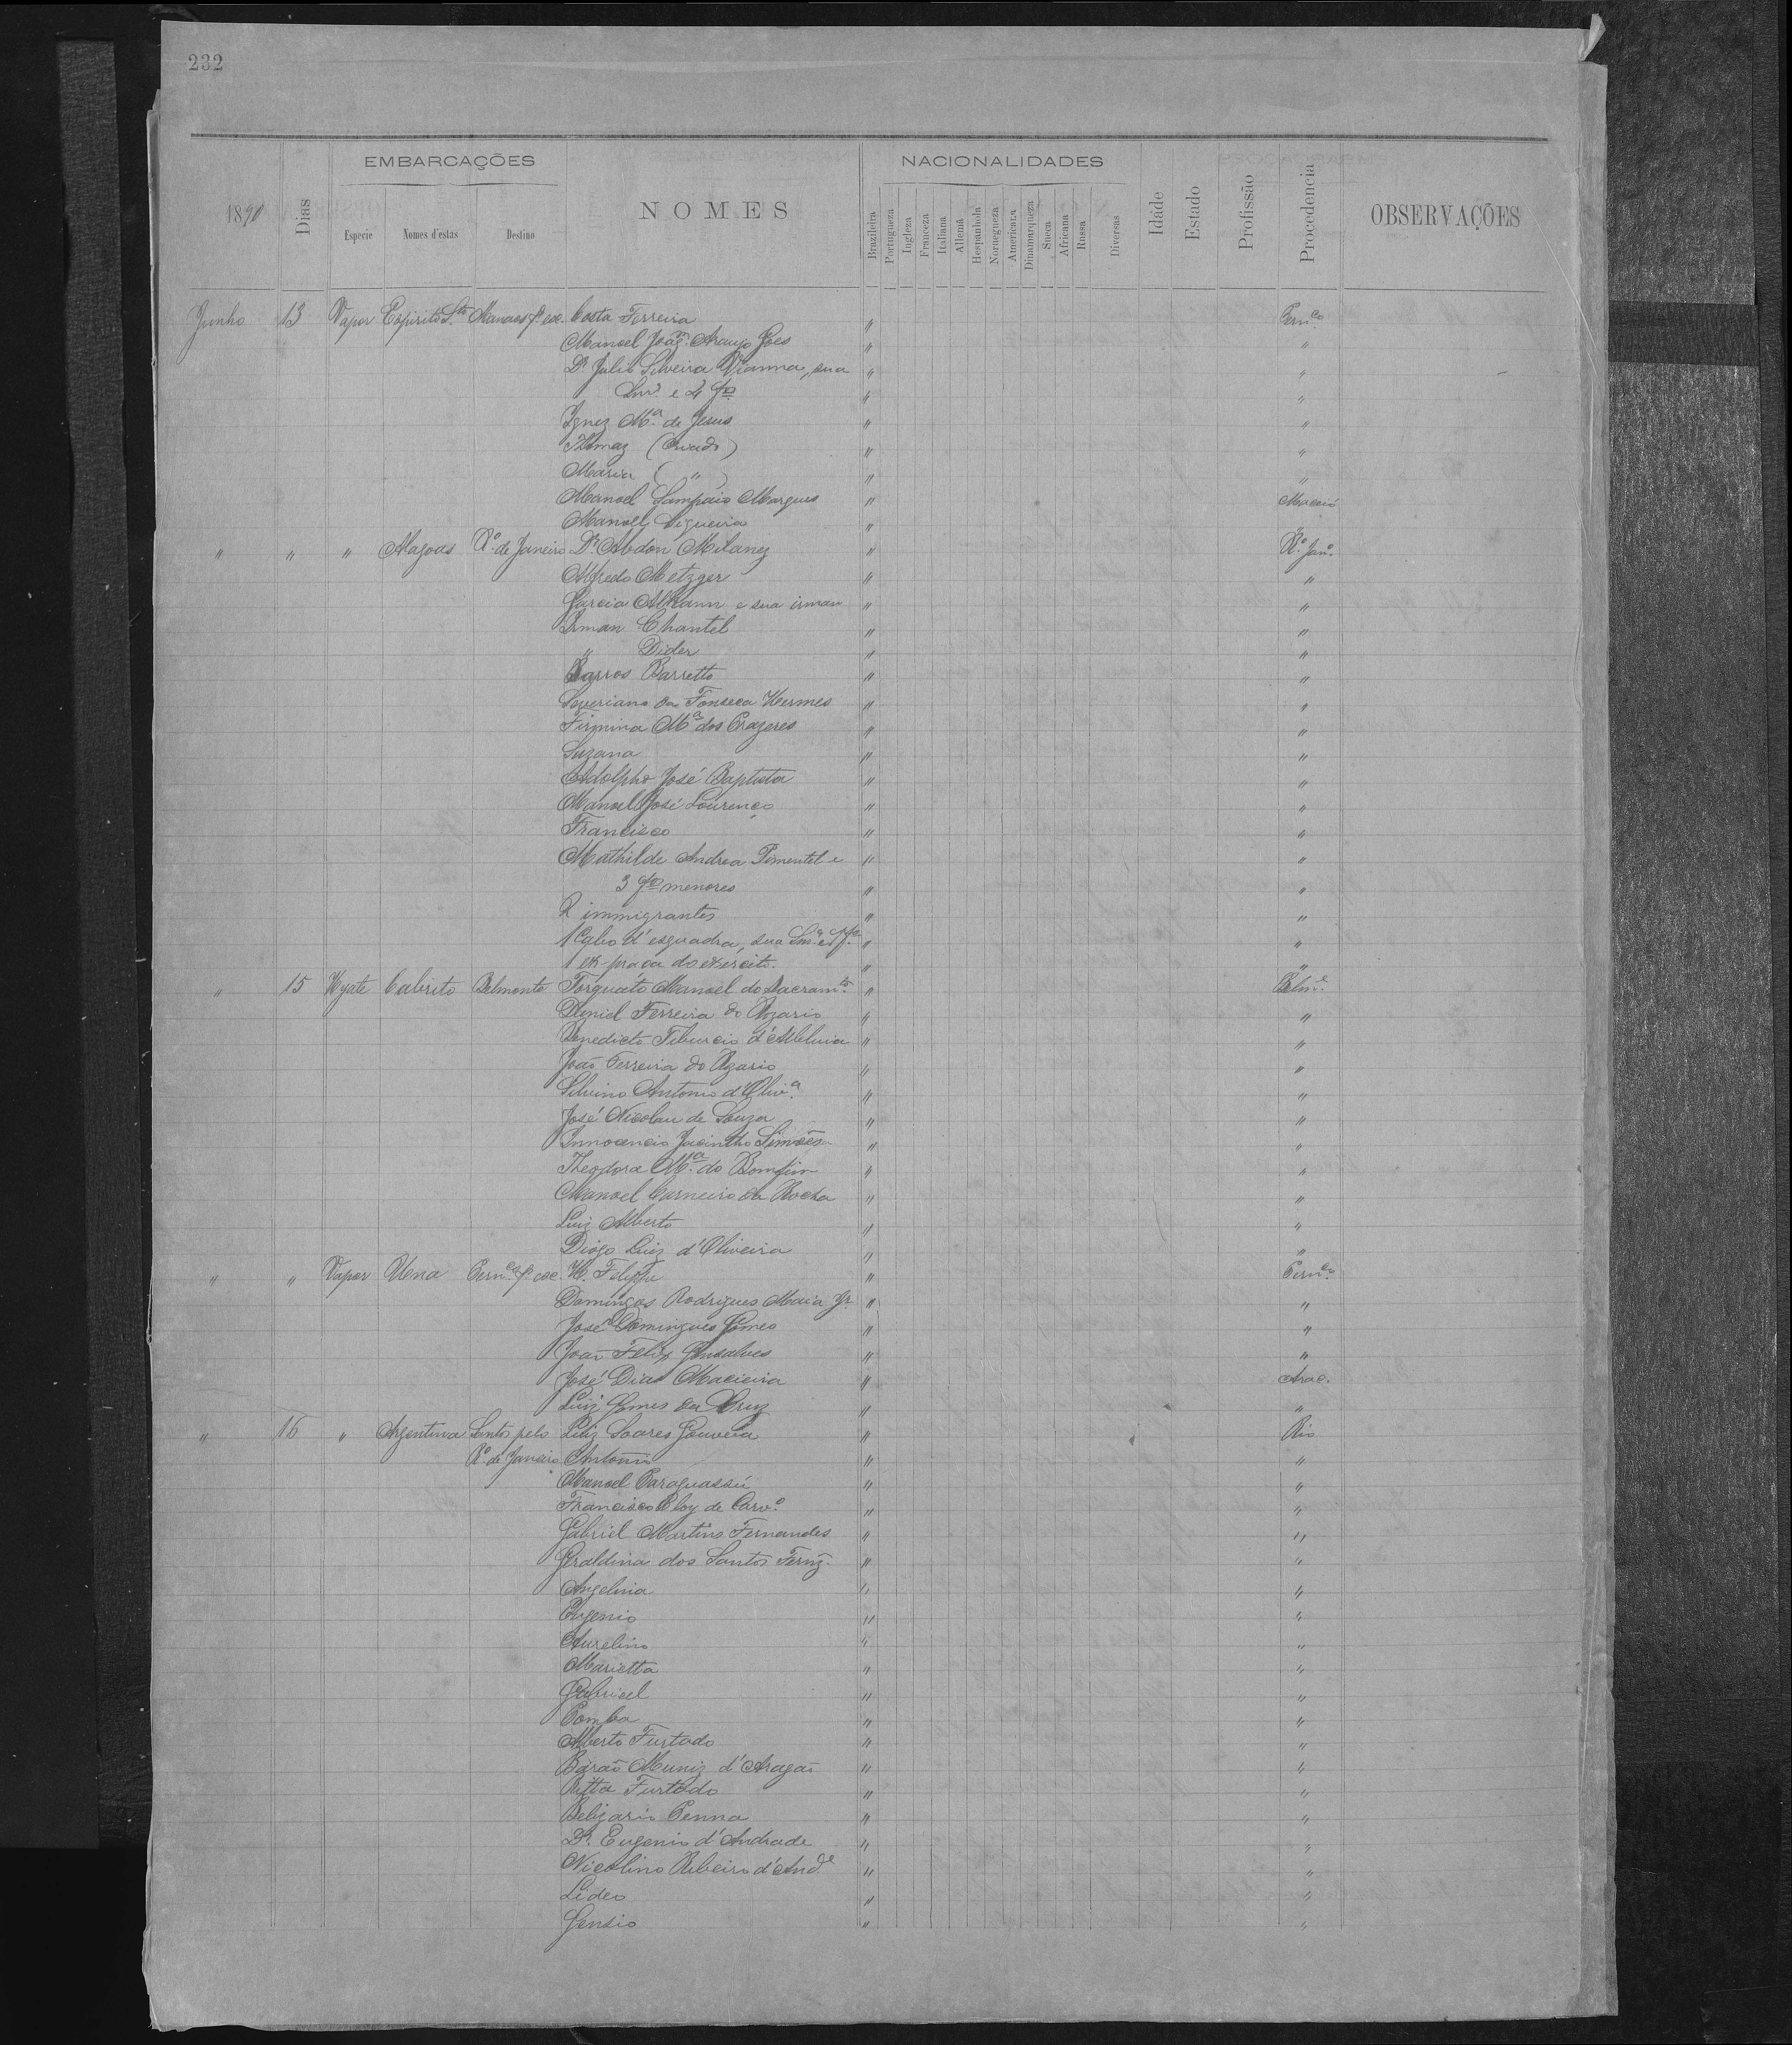 232
EMBARCAÇÕES NACIONALIDADES
1890 Dias Especie Nomes d'estas Destino NOMES Brazileira Portugueza Ingleza Franceza Italiana Allemã Hespanhola Noruegueza Americana Dinamarqueza Sueca Africana Russa Diversas Idáde Estado Profissão Procedencia OBSERVAÇÕES
Junho 13 Vapor Espirito Sto. Manaos p. esc. Costa Ferreira " Pernco.
Manoel Joaqm. Araujo Goes " "
Dr. Julio Silveira Vianna, sua " "
Snrª. e 4 fos. " "
Ignez Mª. de Jesus " "
Thomaz (Criado) " "
Maria ( " ) " "
Manoel Sampaio Marques " Maceió
Manoel Sigueira "
" " " Alagoas Rº. de Janeiro Dr. Abdon Milanez " Rº. Janº.
Alfredo Metzger " "
Garcia Alkann e sua irman " "
Irman Chantel " "
" Dider " "
Barros Barretto " "
Severiano da Fonseca Hermes " "
Firmina Mª dos Prazeres " "
Suzana " "
Adolpho José Baptista " "
Manoel José Lourenço " "
Francisco " "
Mathilde Andrea Pimentel e " "
3 fos menores " "
2 immigrantes " "
1 Cabo d'esquadra, sua Snrª. e " "
1 ex-praça do exercito. " "
" 15 Hyate Cabrito Belmonte Torquato Manoel do Sacramto. " Belme.
Daniel Ferreira do Rozario " "
Benedicto Tiburcio d'Alleluia " "
João Ferreira do Rozario " "
Silvino Antonio d'Olivª. " "
José Nicolau de Souza " "
Innocencio Jacintho Simões " "
Theodora Mª. do Bomfim " "
Manoel Carneiro da Rocha " "
Luiz Alberto " "
Diogo Luiz d'Oliveira " "
" " Vapor Una Pernco. p. esc. H. Filippe " Pernco.
Domingos Rodrigues Maia Jr. " "
José Domingues Gomes " "
João Felix Gonsalves " "
José Dias Macieira " Arac.
Luiz Gomes da Cruz " "
" 16 " Argentina Santos pelo Luiz Soares Gouveia " Rio
Rº. de Janeiro Antonio " "
Manoel Paraguassú " "
Francisco Eloy de Carvº. " "
Gabriel Martins Fernandes " "
Geraldina dos Santos Fernz. " "
Angelina " "
Eugenio " "
Aurelino " "
Marietta " "
Gabriel " "
Pomba " "
Alberto Furtado " "
Barão Muniz d'Aragão " "
Ritta Furtado " "
Belizario Penna " "
Dr. Eugenio d'Andrade " "
Nicolino Ribeiro d'Andde. " "
" "
" "